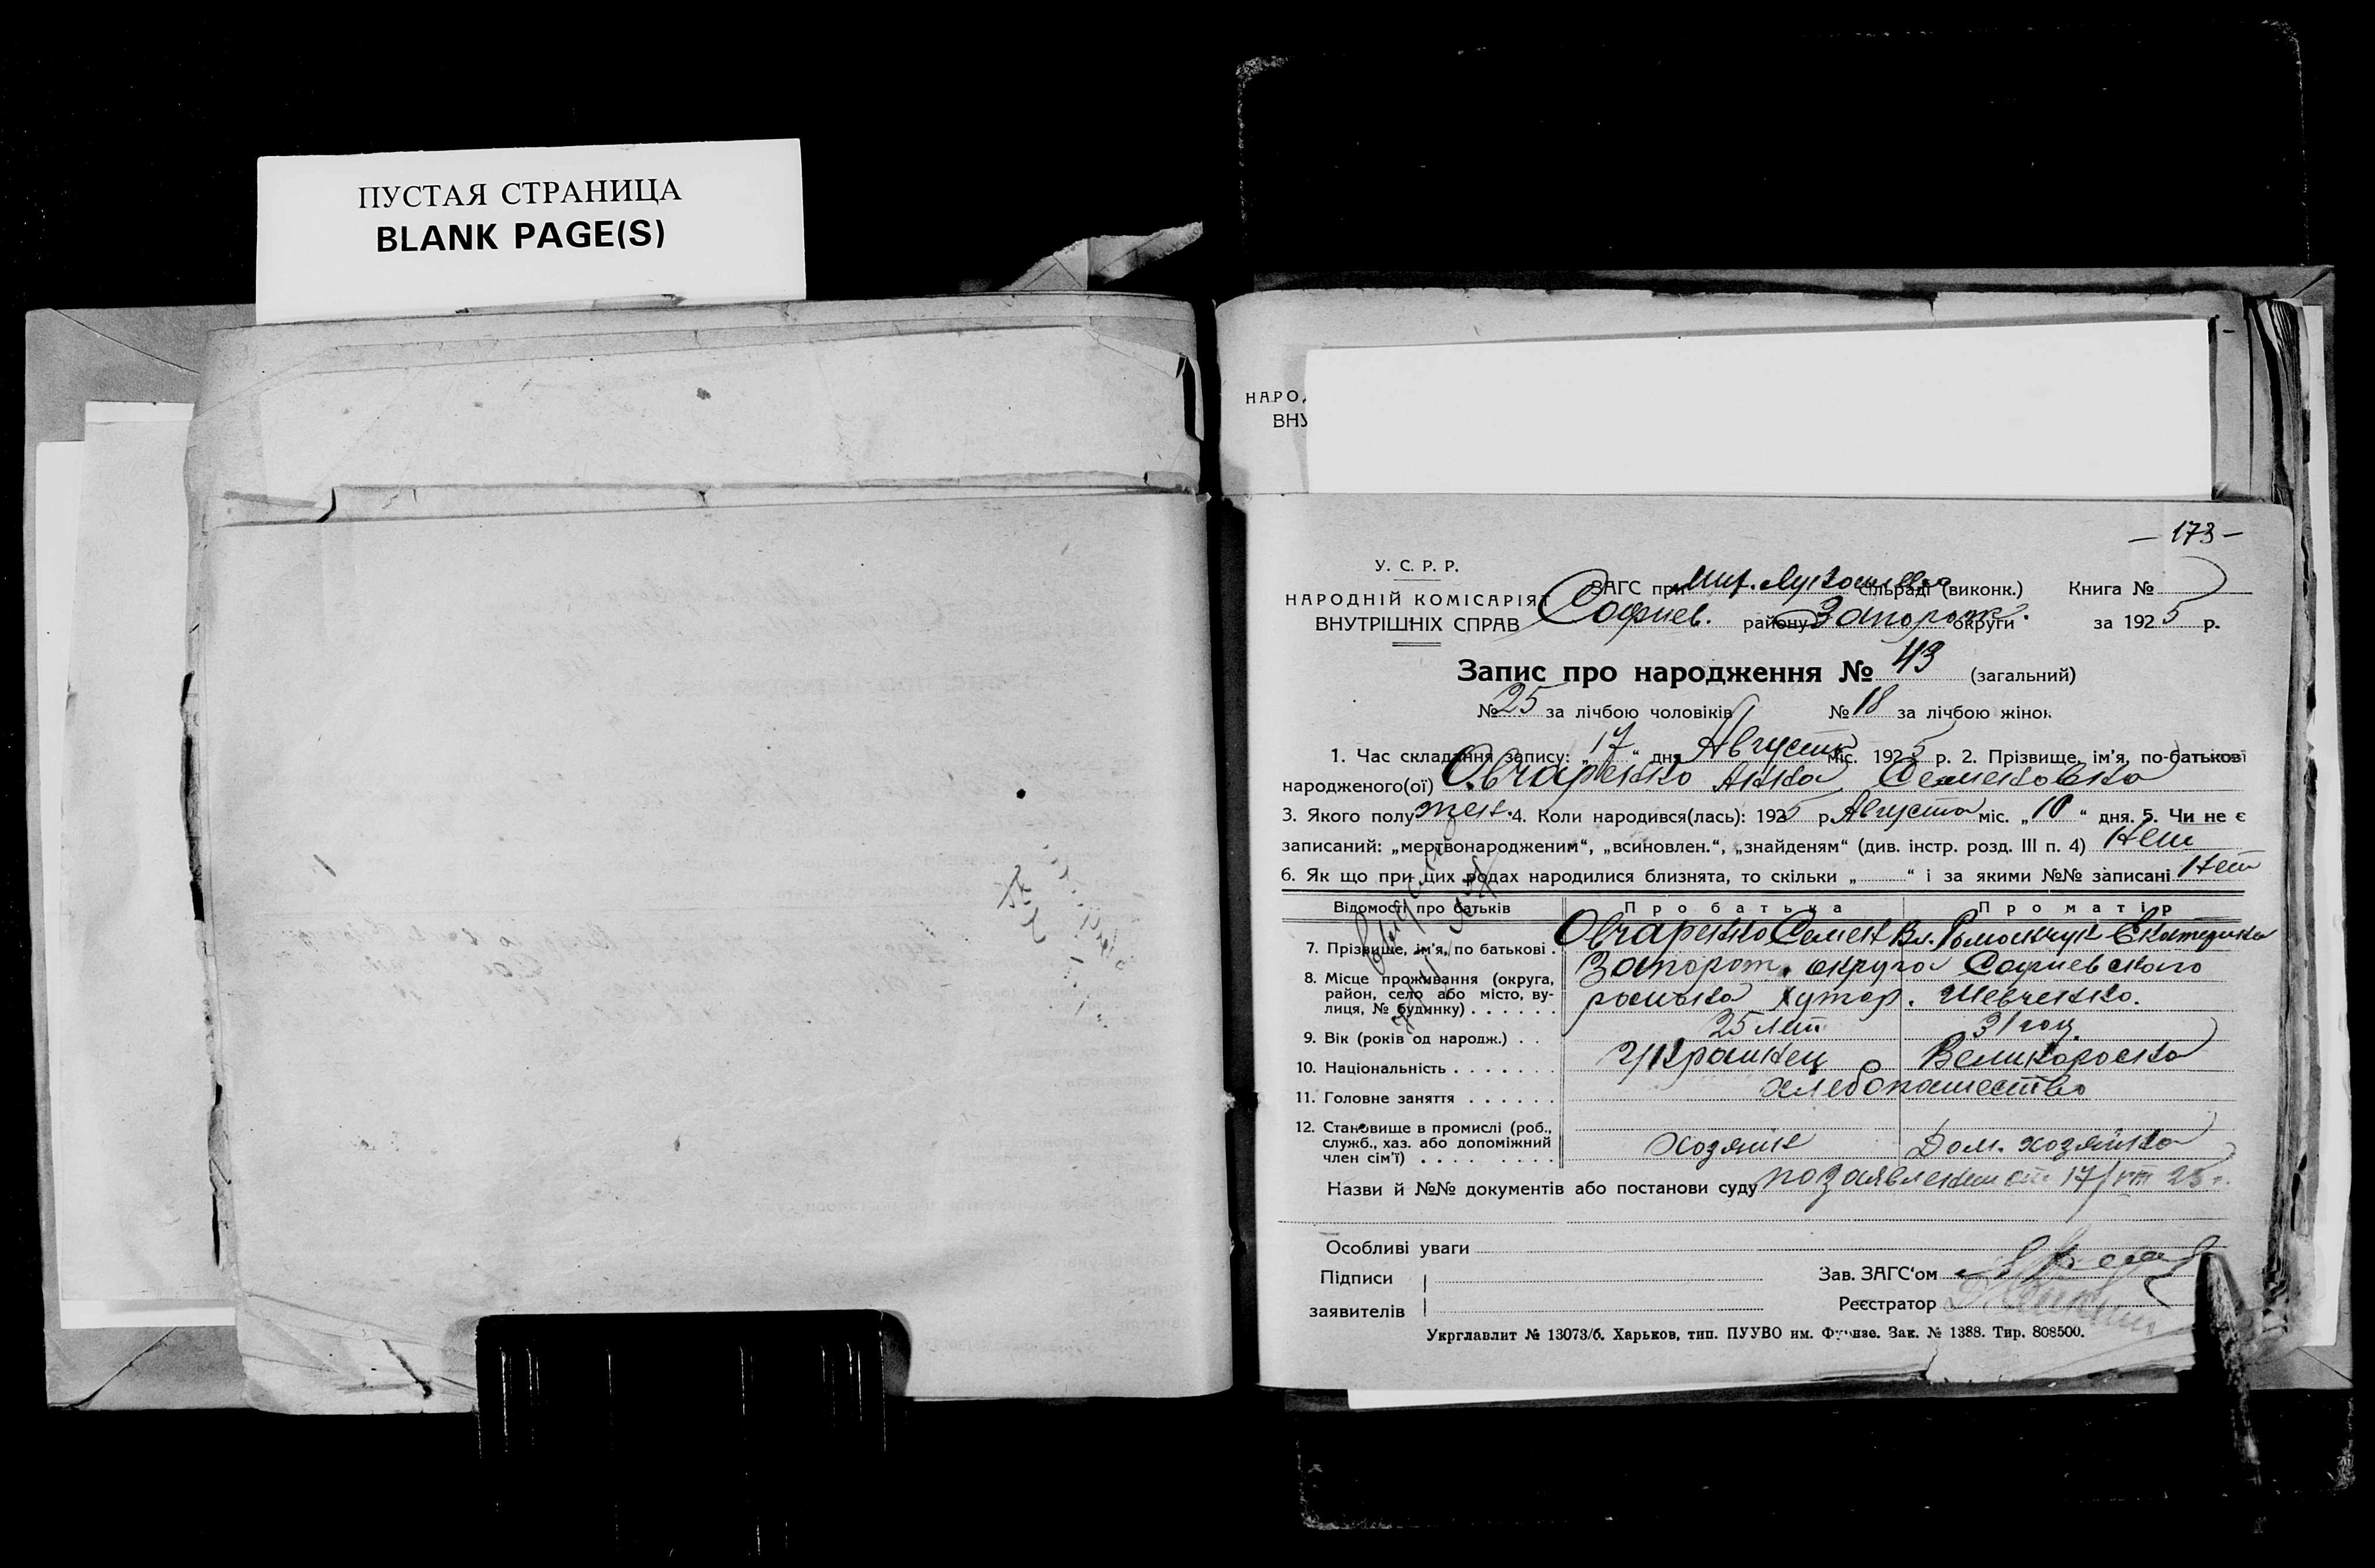 ПУСТАЯ СТРАНИЦА
BLANK PAGE(S)
НАРОД
ВНУ
— 173 —
У. С. Р. Р.
НАРОДНІЙ КОМІСАРІЯТ
ВНУТРІШНІХ СПРАВ
ЗАГС при сільраді (виконк.) Книга №
Софиев. району Запорож. округи за 1925 р.
Запис про народження № 43 (загальний)
№ 25 за лічбою чоловіків № 18 за лічбою жінок
1. Час складання запису: „17“ дня Августа міс. 1925 р. 2. Прізвище, ім'я, по-батькові
народженого(ої) Овчаренко Анна Семеновна
3. Якого полу жен. 4. Коли народився(лась): 1925 р. Августа міс. „10“ дня. 5. Чи не є
записаний: „мертвонародженим“, „всиновлен.“, „знайденям“ (див. інстр. розд. III п. 4) Нет
6. Як що при цих родах народилися близнята, то скільки „ “ і за якими №№ записані Нет
Відомості про батьків Про батька Про матір
7. Прізвище, ім'я, по батькові . Овчаренко Семен Екатерина
8. Місце проживання (округа, район, село або місто, вулиця, № будинку) . . . . . . Запорож. округа Софиевского
района Хутор. Шевченко.
9. Вік (років од народж.) . . 25 лет 31 год.
10. Національність . . . . . . . Украинец Великороска
11. Головне заняття . . . . . . хлебопашество
12. Становище в промислі (роб.,
служб., хаз. або допоміжний
член сім'ї) . . . . . . . . Хозяин Дом. хозяйка
Назви й №№ документів або постанови суду по заявлению от 17/VIII 25 г.
Особливі уваги
Підписи
заявителів
Зав. ЗАГС'ом
Реєстратор
Укрглавлит № 13073/б. Харьков, тип. ПУУВО им. Фрунзе. Зак. № 1388. Тир. 808500.